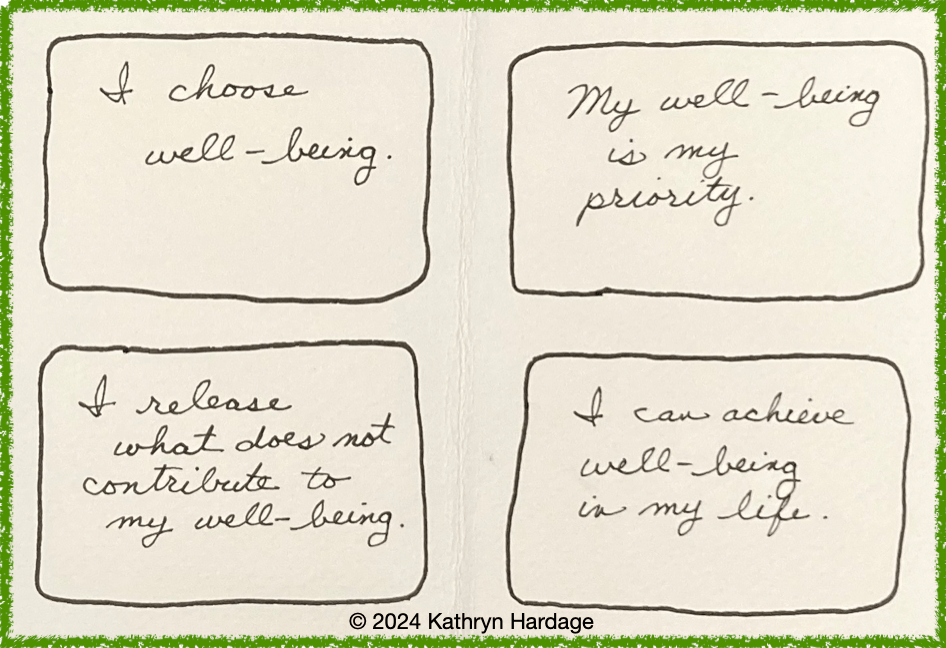 I choose
well-being.
My well-being
is my
priority.
I release
what does not
contribute to
my well-being.
I can achieve
well-being
in my life.
© 2024 Kathryn Hardage